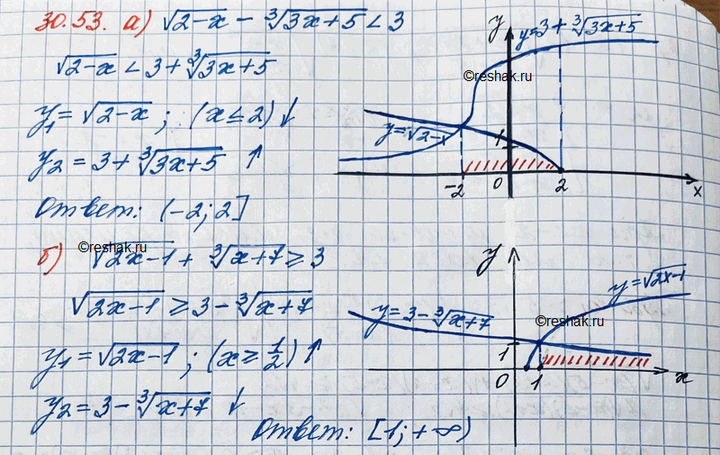 30.53. а) √(2-x) - ∛(3x+5) < 3
√(2-x) < 3 + ∛(3x+5)
y₁ = √(2-x) ; (x ≤ 2) ↓
y₂ = 3 + ∛(3x+5) ↑
Ответ: (-2; 2]
y
y=3+∛(3x+5)
©reshak.ru
y=√(2-x)
1
-2 0 2 x
б) √(2x-1) + ∛(x+7) ≥ 3
©reshak.ru
√(2x-1) ≥ 3 - ∛(x+7)
y₁ = √(2x-1) ; (x ≥ 1/2) ↑
y₂ = 3 - ∛(x+7) ↓
Ответ: [1; +∞)
y
y=√(2x-1)
y=3-∛(x+7)
©reshak.ru
1
0 1 x